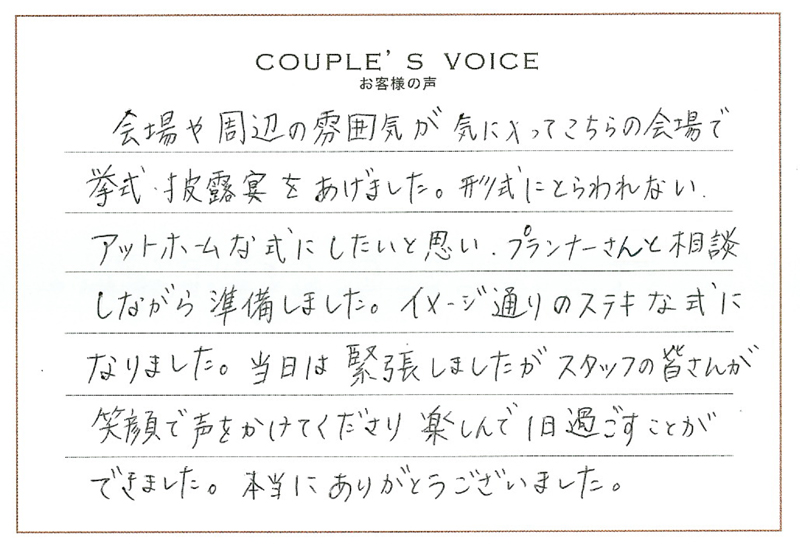 COUPLE'S VOICE
お客様の声
会場や周辺の雰囲気が気に入ってこちらの会場で
挙式・披露宴をあげました。形式にとらわれない、
アットホームな式にしたいと思い、プランナーさんと相談
しながら準備しました。イメージ通りのステキな式に
なりました。当日は緊張しましたがスタッフの皆さんが
笑顔で声をかけてくださり楽しんで1日過ごすことが
できました。本当にありがとうございました。